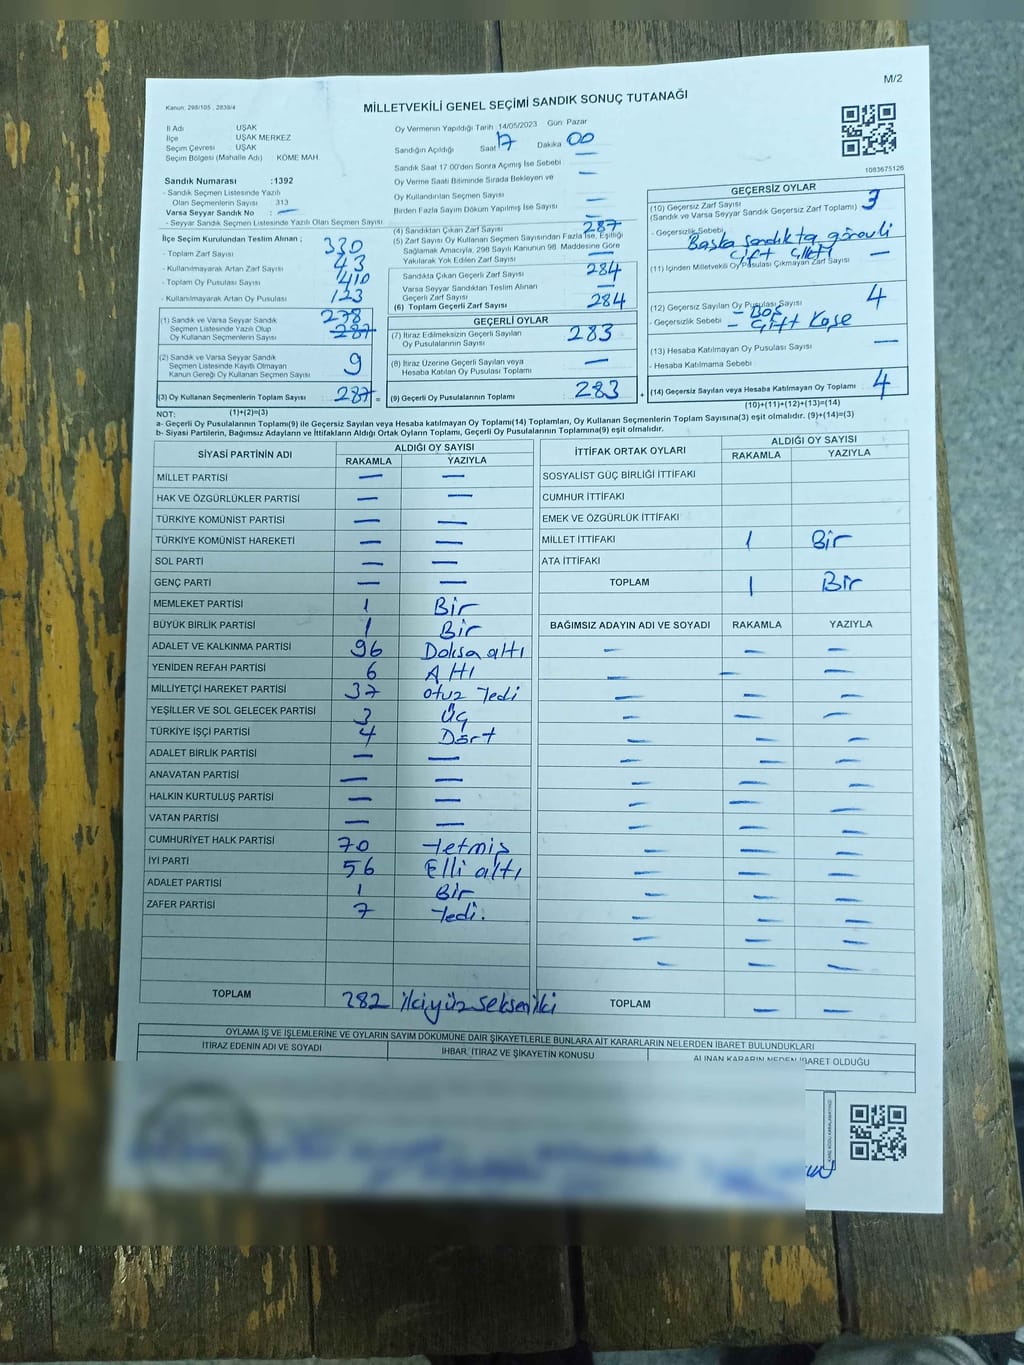 M/2
Kanun: 298/105 , 2839/4
MİLLETVEKİLİ GENEL SEÇİMİ SANDIK SONUÇ TUTANAĞI
İl Adı UŞAK
İlçe UŞAK MERKEZ
Seçim Çevresi : UŞAK
Seçim Bölgesi (Mahalle Adı) KÖME MAH.
Sandık Numarası :1392
- Sandık Seçmen Listesinde Yazılı
Olan Seçmenlerin Sayısı 313
Varsa Seyyar Sandık No : —
- Seyyar Sandık Seçmen Listesinde Yazılı Olan Seçmen Sayısı
İlçe Seçim Kurulundan Teslim Alınan ;
- Toplam Zarf Sayısı 330
- Kullanılmayarak Artan Zarf Sayısı 43
- Toplam Oy Pusulası Sayısı 410
- Kullanılmayarak Artan Oy Pusulası 123
(1) Sandık ve Varsa Seyyar Sandık 278
Seçmen Listesinde Yazılı Olup
Oy Kullanan Seçmenlerin Sayısı 287
(2) Sandık ve Varsa Seyyar Sandık
Seçmen Listesinde Kayıtlı Olmayan
Kanun Gereği Oy Kullanan Seçmen Sayısı 9
(3) Oy Kullanan Seçmenlerin Toplam Sayısı 287 =
(1)+(2)=(3)
Oy Vermenin Yapıldığı Tarih 14/05/2023 Gün: Pazar
Sandığın Açıldığı Saat 17 Dakika 00
Sandık Saat 17:00'den Sonra Açımış İse Sebebi —
Oy Verme Saati Bitiminde Sırada Bekleyen ve
Oy Kullandırılan Seçmen Sayısı —
Birden Fazla Sayım Döküm Yapılmış İse Sayısı —
(4) Sandıktan Çıkan Zarf Sayısı 287
(5) Zarf Sayısı Oy Kullanan Seçmen Sayısından Fazla İse, Eşitliği
Sağlamak Amacıyla, 298 Sayılı Kanunun 98. Maddesine Göre
Yakılarak Yok Edilen Zarf Sayısı —
Sandıkta Çıkan Geçerli Zarf Sayısı 284
Varsa Seyyar Sandıktan Teslim Alınan
Geçerli Zarf Sayısı —
(6) Toplam Geçerli Zarf Sayısı 284
GEÇERLİ OYLAR
(7) İtiraz Edilmeksizin Geçerli Sayılan
Oy Pusulalarının Sayısı 283
(8) İtiraz Üzerine Geçerli Sayılan veya
Hesaba Katılan Oy Pusulası Toplamı —
(9) Geçerli Oy Pusulalarının Toplamı 283 +
1083675126
GEÇERSİZ OYLAR
(10) Geçersiz Zarf Sayısı 3
(Sandık ve Varsa Seyyar Sandık Geçersiz Zarf Toplamı)
- Geçersizlik Sebebi
Başka sandıkta görevli
(11) İçinden Milletvekili Oy Pusulası Çıkmayan Zarf Sayısı —
(12) Geçersiz Sayılan Oy Pusulası Sayısı 4
- Geçersizlik Sebebi - Boş
- Çift Kaşe
(13) Hesaba Katılmayan Oy Pusulası Sayısı —
- Hesaba Katılmama Sebebi
(14) Geçersiz Sayılan veya Hesaba Katılmayan Oy Toplamı 4
(10)+(11)+(12)+(13)=(14)
NOT:
a- Geçerli Oy Pusulalarının Toplamı(9) ile Geçersiz Sayılan veya Hesaba katılmayan Oy Toplamı(14) Toplamları, Oy Kullanan Seçmenlerin Toplam Sayısına(3) eşit olmalıdır. (9)+(14)=(3)
b- Siyasi Partilerin, Bağımsız Adayların ve İttifakların Aldığı Ortak Oyların Toplamı, Geçerli Oy Pusulalarının Toplamına(9) eşit olmalıdır.
SİYASİ PARTİNİN ADI ALDIĞI OY SAYISI
RAKAMLA YAZIYLA
MİLLET PARTİSİ — —
HAK VE ÖZGÜRLÜKLER PARTİSİ — —
TÜRKİYE KOMÜNİST PARTİSİ — —
TÜRKİYE KOMÜNİST HAREKETİ — —
SOL PARTİ — —
GENÇ PARTİ — —
MEMLEKET PARTİSİ 1 Bir
BÜYÜK BİRLİK PARTİSİ 1 Bir
ADALET VE KALKINMA PARTİSİ 96 Doksa altı
YENİDEN REFAH PARTİSİ 6 Altı
MİLLİYETÇİ HAREKET PARTİSİ 37 otuz Yedi
YEŞİLLER VE SOL GELECEK PARTİSİ 3 Üç
TÜRKİYE İŞÇİ PARTİSİ 4 Dört
ADALET BİRLİK PARTİSİ — —
ANAVATAN PARTİSİ — —
HALKIN KURTULUŞ PARTİSİ — —
VATAN PARTİSİ — —
CUMHURİYET HALK PARTİSİ 70 Yetmiş
İYİ PARTİ 56 Elli altı
ADALET PARTİSİ 1 Bir
ZAFER PARTİSİ 7 Yedi.
TOPLAM 282 ikiyüz seksen iki
İTTİFAK ORTAK OYLARI ALDIĞI OY SAYISI
RAKAMLA YAZIYLA
SOSYALİST GÜÇ BİRLİĞİ İTTİFAKI
CUMHUR İTTİFAKI
EMEK VE ÖZGÜRLÜK İTTİFAKI
MİLLET İTTİFAKI 1 Bir
ATA İTTİFAKI
TOPLAM 1 Bir
BAĞIMSIZ ADAYIN ADI VE SOYADI RAKAMLA YAZIYLA
TOPLAM — —
OYLAMA İŞ VE İŞLEMLERİNE VE OYLARIN SAYIM DÖKÜMÜNE DAİR ŞİKAYETLERLE BUNLARA AİT KARARLARIN NELERDEN İBARET BULUNDUKLARI
İTİRAZ EDENİN ADI VE SOYADI İHBAR, İTİRAZ VE ŞİKAYETİN KONUSU ALINAN KARARIN NEDEN İBARET OLDUĞU